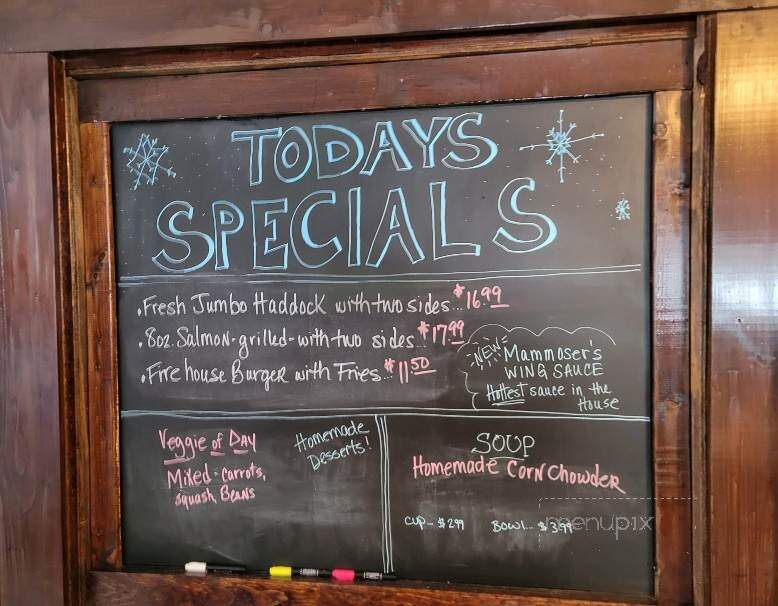 TODAYS
SPECIALS
.Fresh Jumbo Haddock with two sides...$16.99
.8oz. Salmon-grilled-with two sides...$17.99
.Firehouse Burger with Fries..$11.50
-NEW-
Mammoser's
WING SAUCE
Hottest sauce in the
House
Veggie of DAY
Mixed-carrots,
squash, Beans
Homemade
Desserts!
SOUP
Homemade Corn Chowder
CUP-$2.99 BOWL..$3.99
menupix